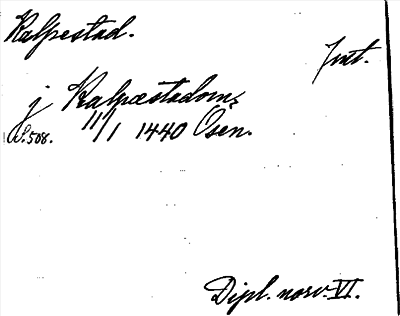 Kalpestad.
Jnt.
j Kalpæstadom,
S. 508. 11/1 1440 Osen.
Dipl. norv. VI.